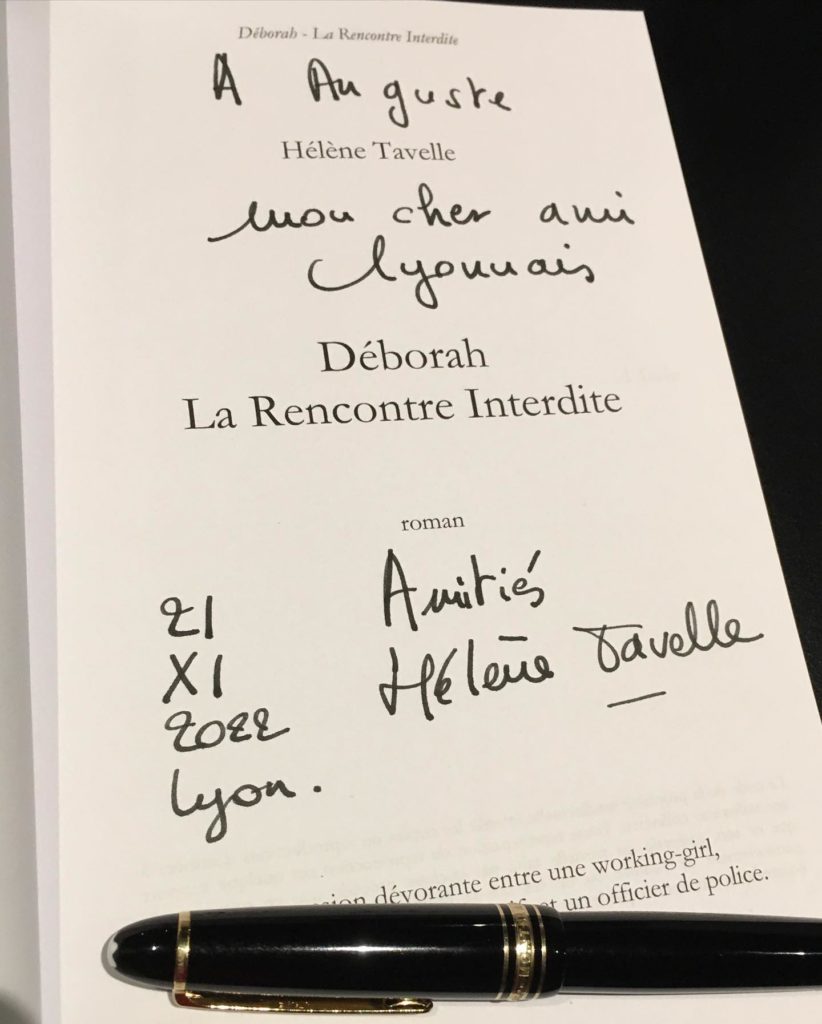 Déborah - La Rencontre Interdite
A Auguste
Hélène Tavelle
mon cher ami
lyonnais
Déborah
La Rencontre Interdite
roman
Amitiés
Hélène Tavelle
21
XI
2022
Lyon.
dévorante entre une working-girl,
et un officier de police.